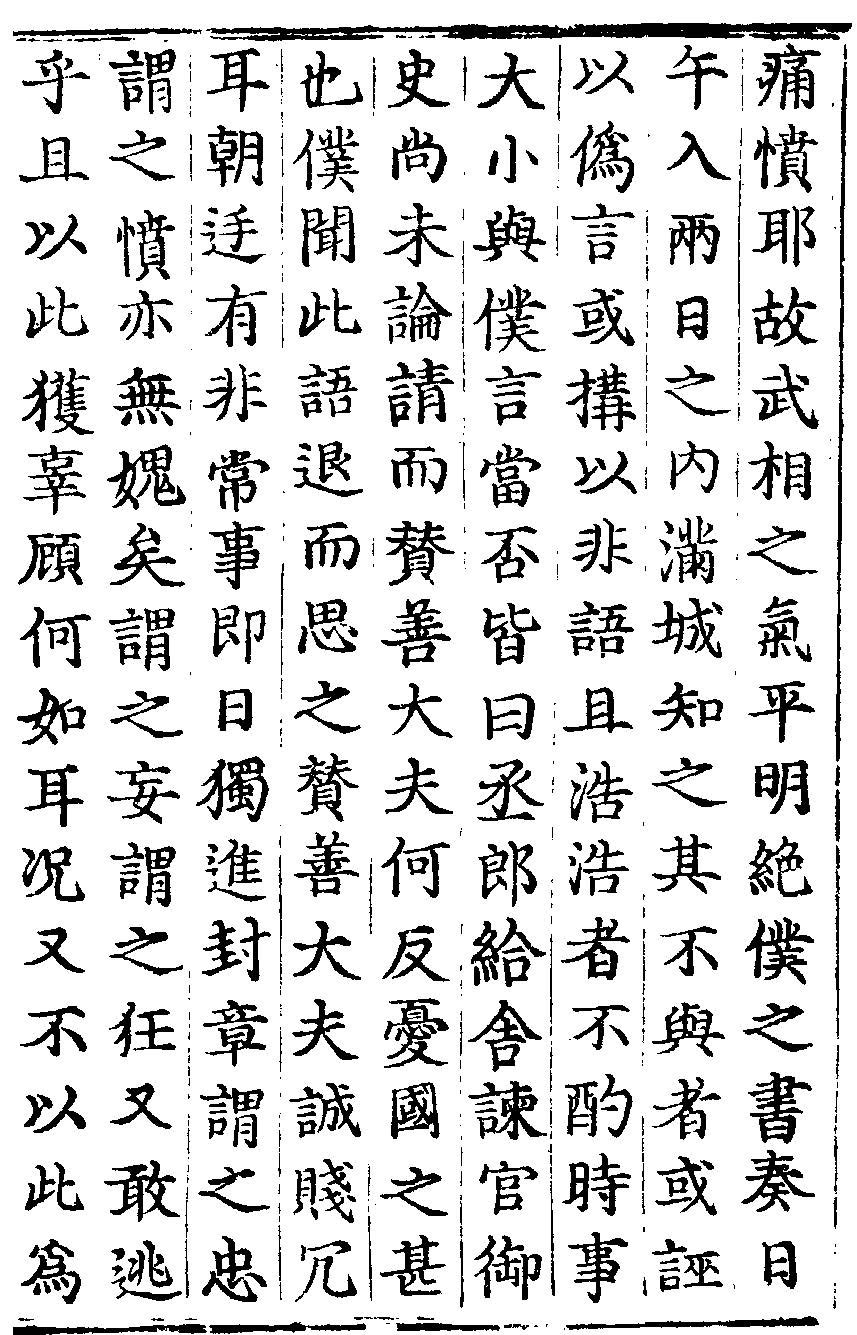 痛憤耶故武相之氣平明絶僕之書奏日
午入兩日之内滿城知之其不與者或誣
以僞言或搆以非語且浩浩者不酌時事
大小與僕言當否皆曰丞郎給舍諫官御
史尚未論請而賛善大夫何反憂國之甚
也僕聞此語退而思之賛善大夫誠賤冗
耳朝廷有非常事即日獨進封章謂之忠
謂之憤亦無媿矣謂之妄謂之狂又敢逃
乎且以此獲辜顧何如耳况又不以此爲